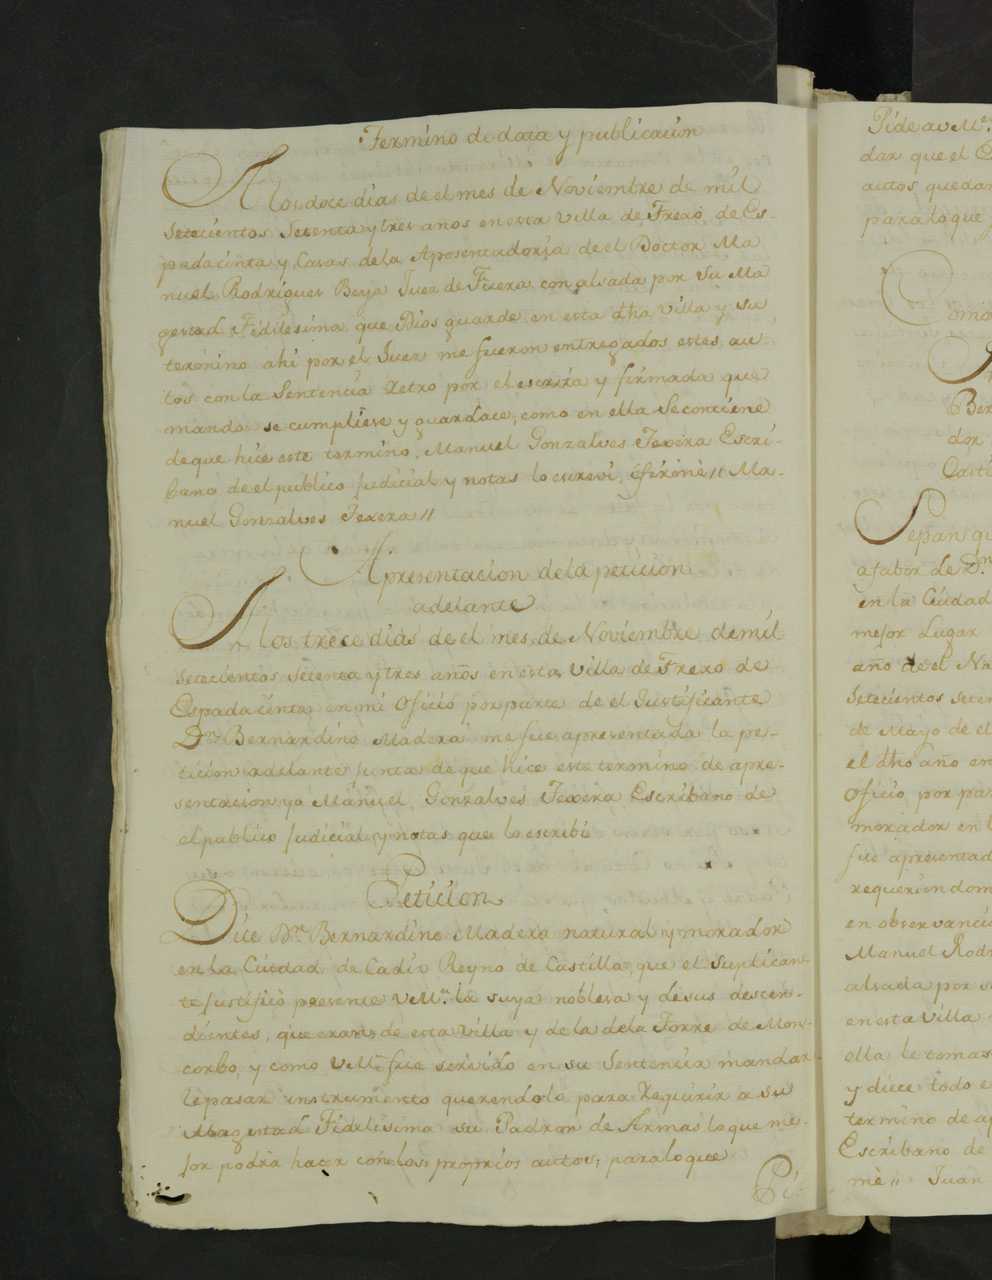 Termino de data y publicacion
A los doce dias de el mes de Noviembre de mil
Setecientos Setenta y tres años en esta Villa de Frexo de Es-
padacinta y Casas de la Aposentadoria de el Doctor Ma
nuel Rodriguez Beya Juez de Fuera con alsada por Su Ma
gestad Fidilesima que Dios guarde en esta dha villa y su
termino ahi por el Juez me fueron entregados estes au-
tos con la Sentencia retro por el escrita y firmada que
mando se cumpliese y guardace, como en ella Se contiene
de que hice este termino, Manuel Gonzalves Texera Escri-
bano de el publico Judicial y notas lo escrevi, è firmè // Ma-
nuel Gonzalves Texera //
Apresentacion de la peticion
adelante
A los trece dias de el mes de Noviembre de mil
Setecientos Setenta y tres años en esta Villa de Frexo de
Espadacinta en mi Oficio por parte de el Justificante
Dn. Bernardino Madera me fue apresentada la pe-
ticion adelante Junta de que hice este termino de apre-
sentacion yo Manuel Gonzalves Texera Escribano de
el publico Judicial y notas que lo escribi
Peticion
Dice Dn. Bernardino Madera natural y morador
en la Ciudad de Cadiz Reyno de Castilla, que el Suplican-
te Justificò presente VMd. la suya nobleza y de sus descen-
dientes, que eran de esta Villa y de la de la Torre de Mon-
corbo, y como VMd. fue servido en su Sentencia mandar
le pasar instrumento querendolo para Requirir a Su
Magestad Fidelisima su Padron de Armas lo que me-
jor podrà hacer con los proprios autos, para lo que
Pi-
Pide a VMd.
dar que el
autos quedan
para lo que
Como
Ber
dor
Casti
Sepan qu
a fabor de Dn.
en la Ciudad
mejor Lugar
año de el Na
Setecientos Seten
de Mayo de el
el dho año en
Oficio por par
morador en l
fue apresentad
requeriendom
en observancia
Manuel Rodr
alsada por s
en esta Villa
ella le tomas
y dice todo e
termino de ap
Escribano de
mè // Juan